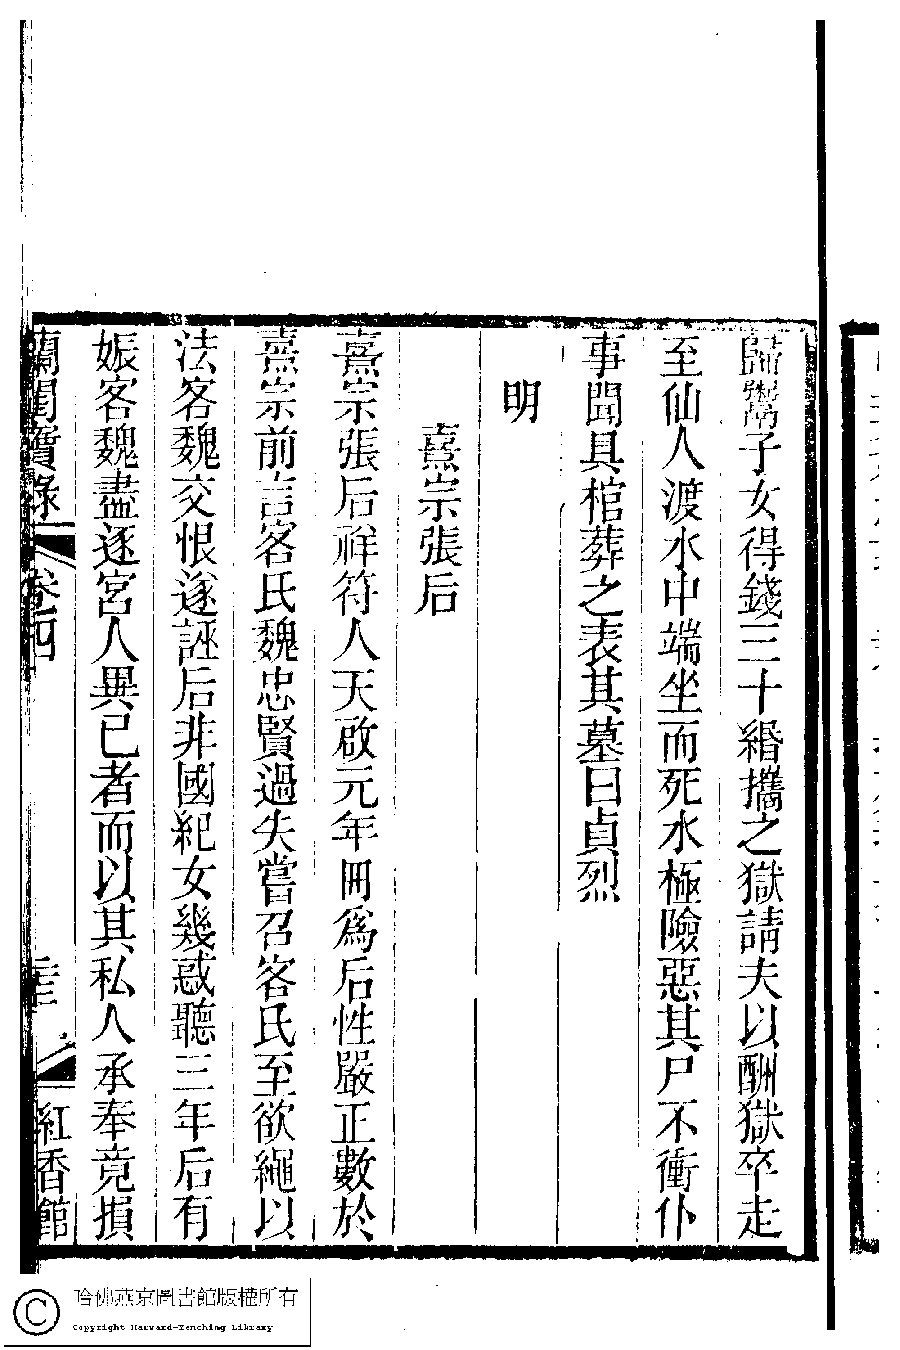 歸鬻子女得錢三十緡攜之獄請夫以酬獄卒走
至仙人渡水中端坐而死水極險惡其尸不衝仆
事聞具棺葬之表其墓曰貞烈
明
熹宗張后
熹宗張后祥符人天啟元年冊爲后性嚴正數於
熹宗前言客氏魏忠賢過失嘗召客氏至欲繩以
法客魏交恨遂誣后非國紀女幾惑聽三年后有
娠客魏盡逐宮人異己者而以其私人承奉竟損
蘭閨寶錄
卷四
三
紅香館
哈佛燕京圖書館版權所有
Copyright Harvard-Yenching Library